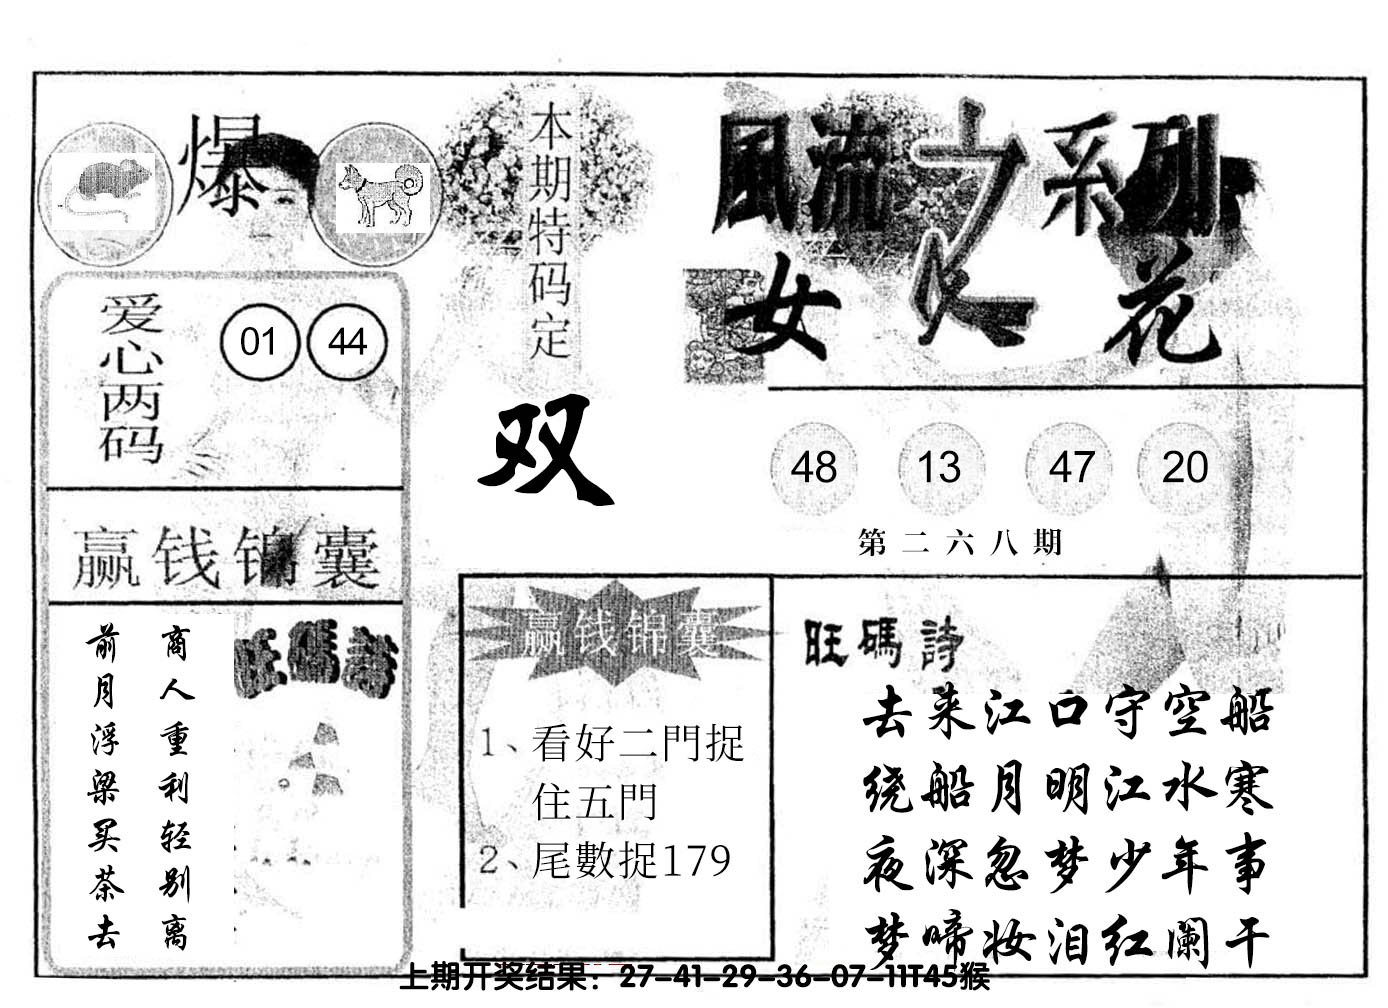 爆
本期特码定
双
風流之系列
女人花
爱心两码
01 44
48 13 47 20
第二六八期
赢钱锦囊
商人重利轻别离
前月浮梁买茶去
旺碼詩
赢钱锦囊
1、看好二門捉
住五門
2、尾數捉179
旺碼詩
去来江口守空船
绕船月明江水寒
夜深忽梦少年事
梦啼妆泪红阑干
上期开奖结果：27-41-29-36-07-11T45猴